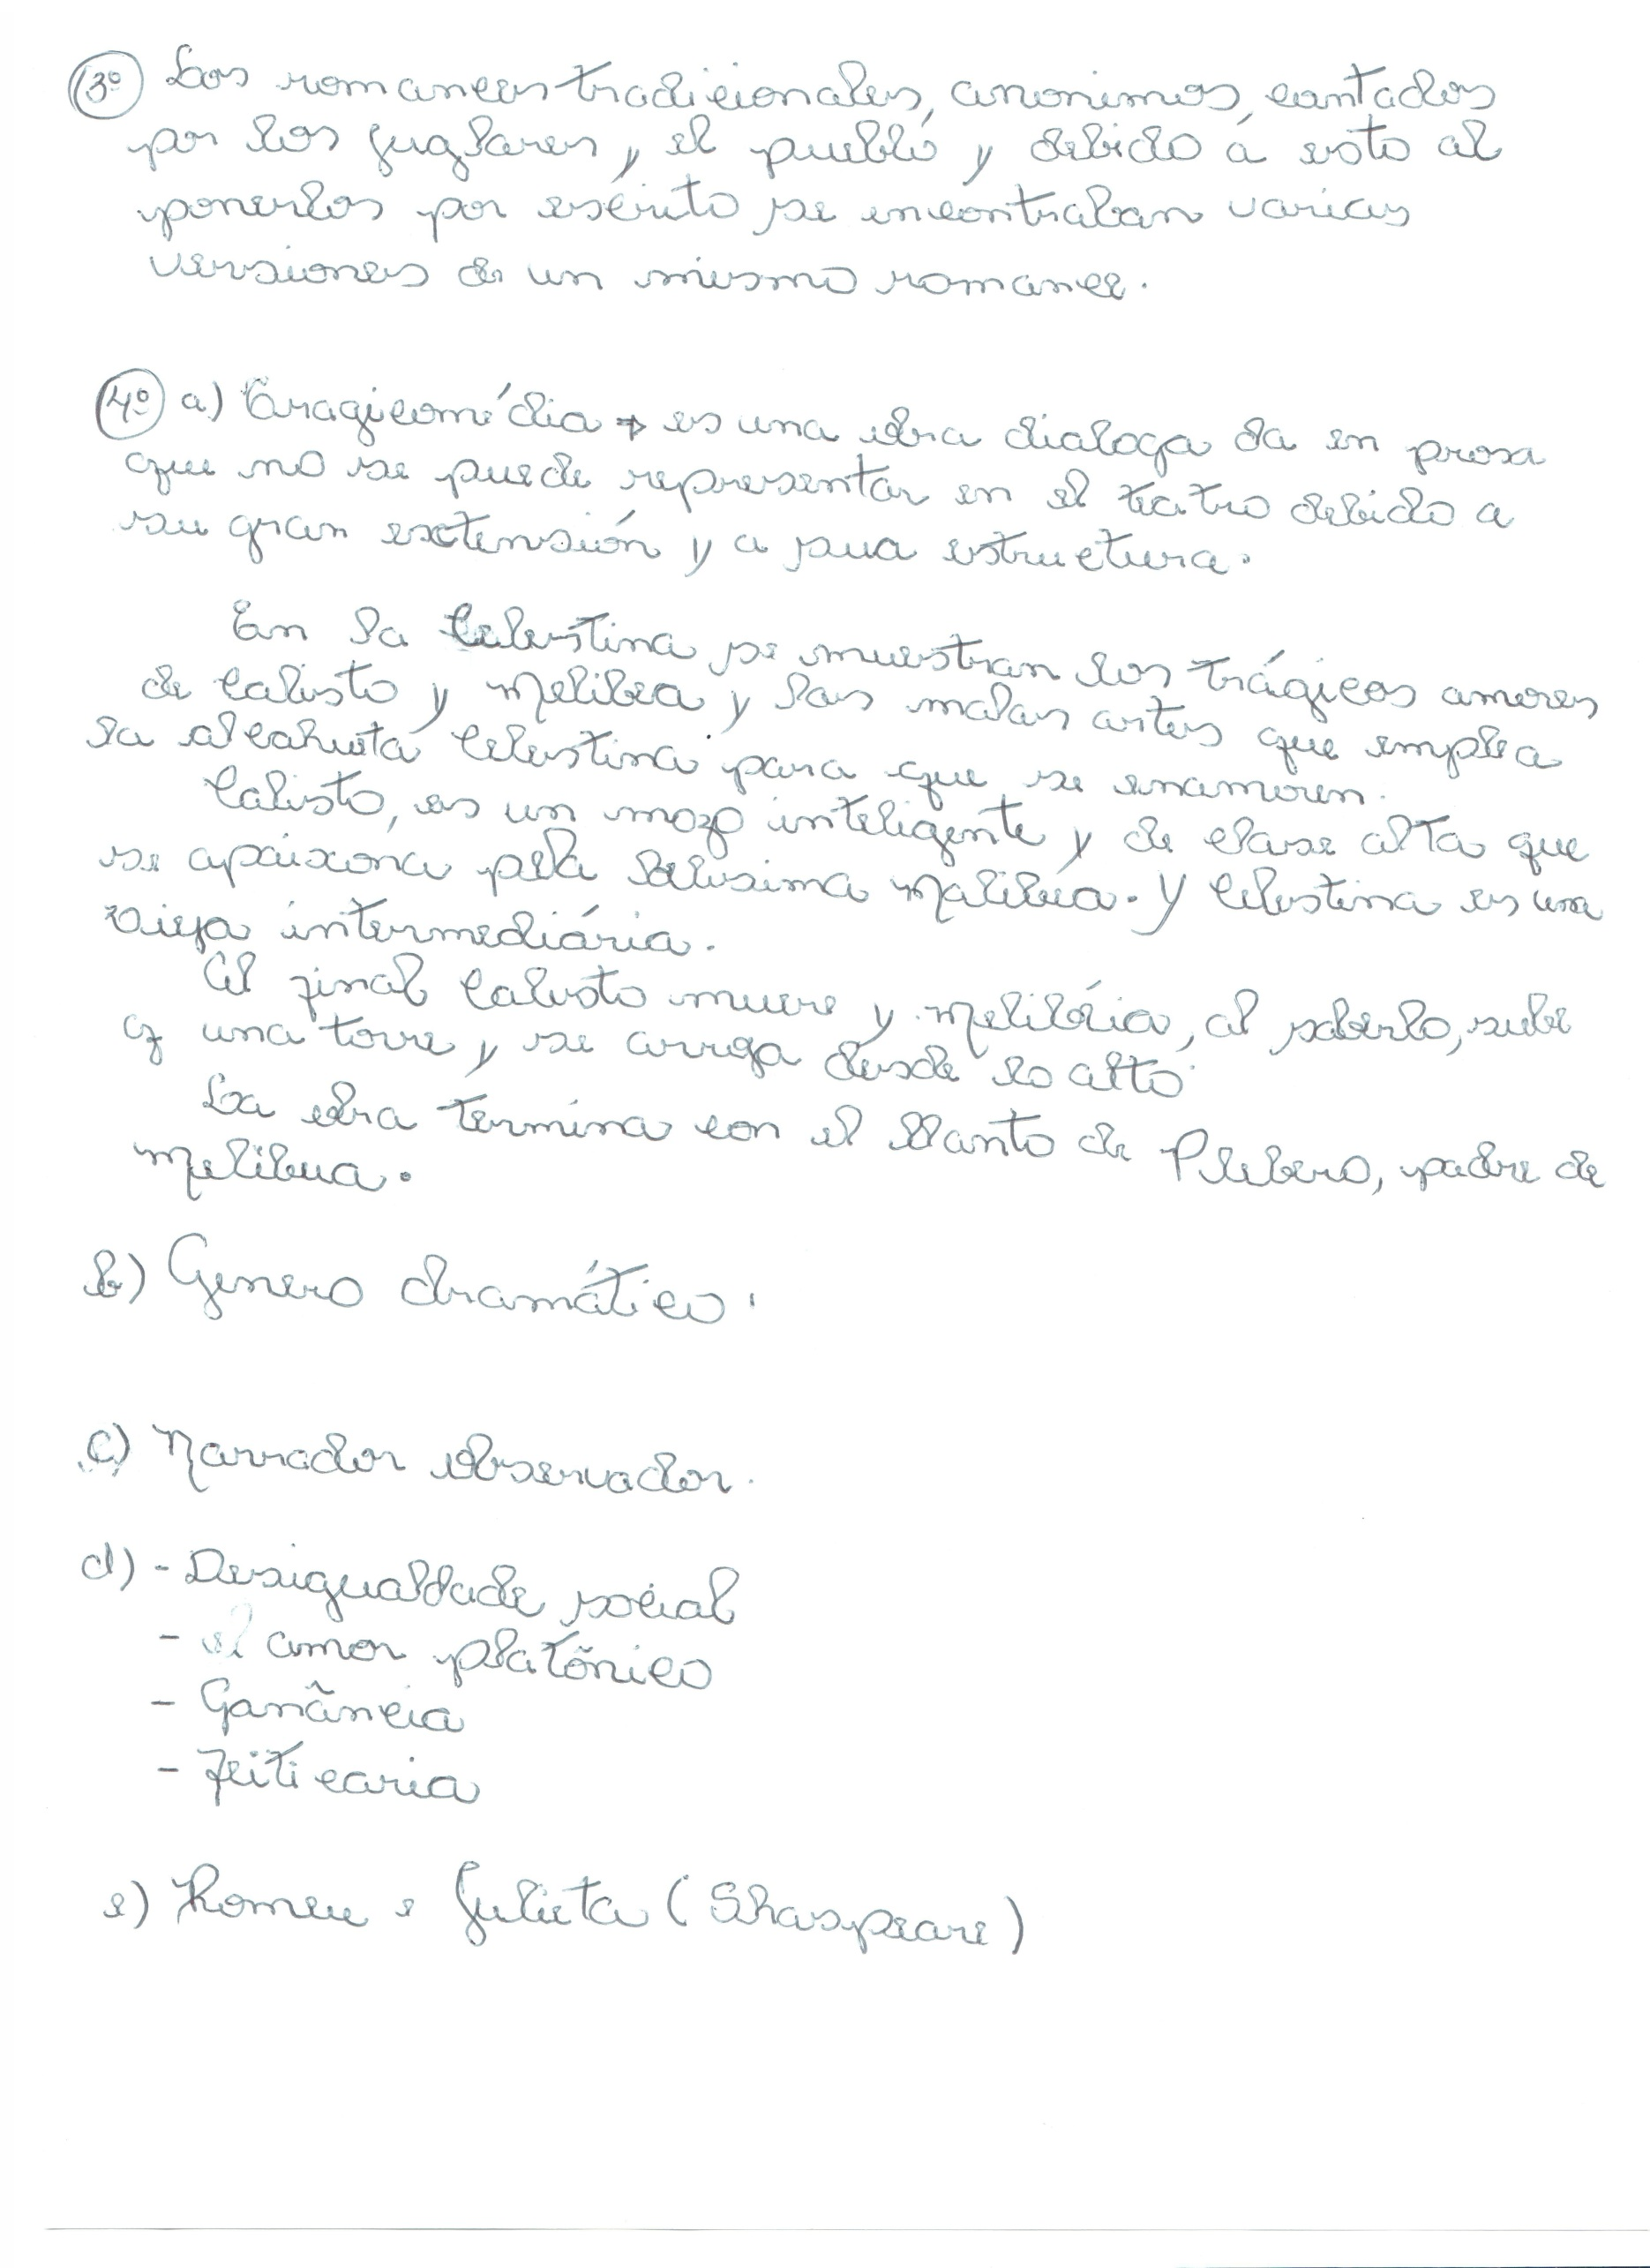 3º Los romances tradicionales, anonimos, cantados
por los juglares y el pueblo y debido á esto al
ponerlos por escrito se encontraban varias
versiones de un mismo romance.
4º a) Tragicomédia → es una obra dialoga da en prosa
que no se puede representar en el teatro debido a
su gran extensión y a sua estructura.
En la Celestina se muestran los trágicos amores
de Calisto y Melibea y las malas artes que emplea
la alcahueta Celestina para que se enamoren.
Calisto, es un mozo inteligente y de clase alta que
se apaixona pela belissima Melibéa. Y Celestina es una
vieja intermediária.
Al final Calisto muere y Melibéia, al saberlo, sube
a una torre y se arroja desde lo alto.
La obra termina con el llanto de Plebero, padre de
Melibea.
b) Genero dramático.
c) Narrador observador.
d) - Desigualdade social
- el amor platônico
- Ganância
- Feiticaria
e) Romeu e Julieta (Shaspeare)